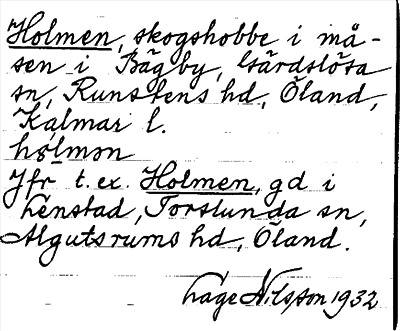 Holmen, skogshobbe i må-
sen i Bägby, Gärdslösa
sn, Runstens hd, Öland,
Kalmar l.
hólmon
Jfr t. ex. Holmen, gd i
Lenstad, Torslunda sn,
Algutsrums hd, Öland.
Lage Nilsson 1932